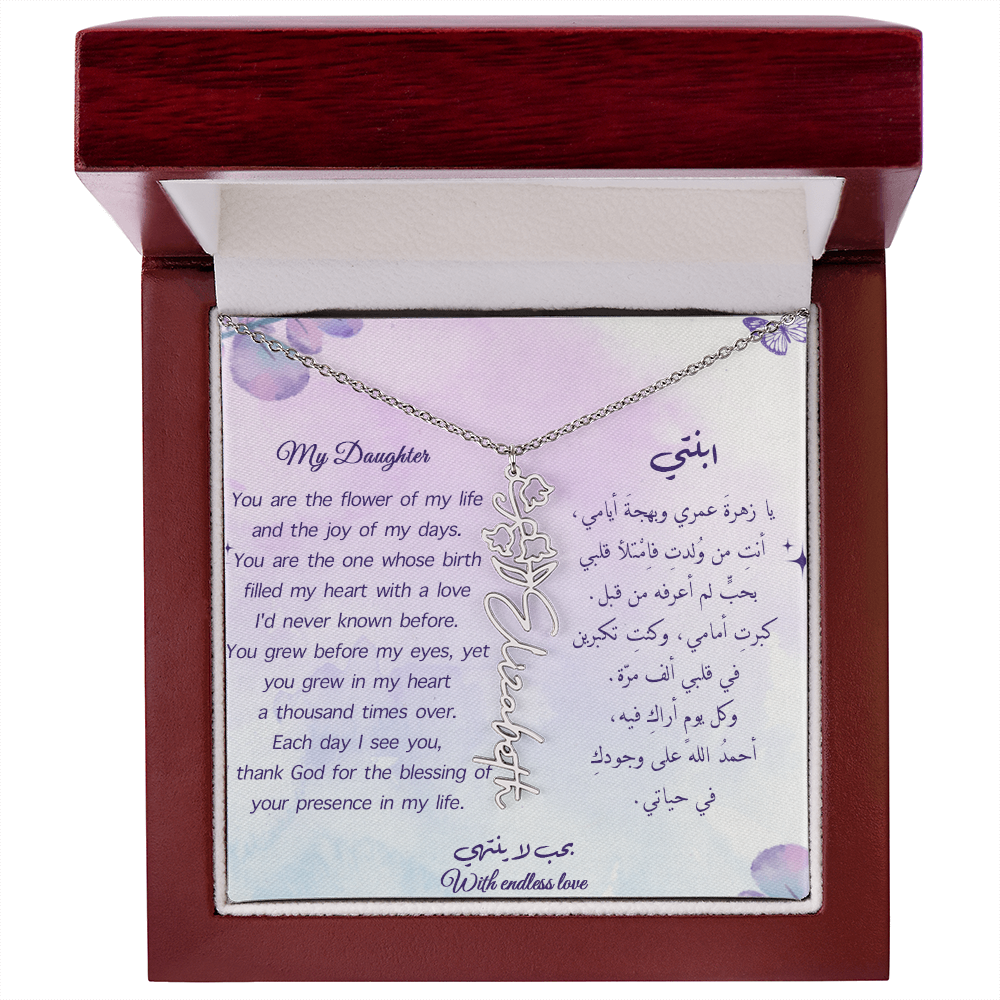 My Daughter
You are the flower of my life
and the joy of my days.
You are the one whose birth
filled my heart with a love
I'd never known before.
You grew before my eyes, yet
you grew in my heart
a thousand times over.
Each day I see you,
thank God for the blessing of
your presence in my life.
Elizabeth
ابنتي
يا زهرةَ عمري وبهجةَ أيامي،
أنتِ من وُلدتِ فامْتلأ قلبي
بحبٍّ لم أعرفه من قبل.
كبرتِ أمامي، وكنتِ تكبرين
في قلبي ألف مرّة.
وكل يومٍ أراكِ فيه،
أحمدُ اللهَ على وجودكِ
في حياتي.
بحب لا ينتهي
With endless love